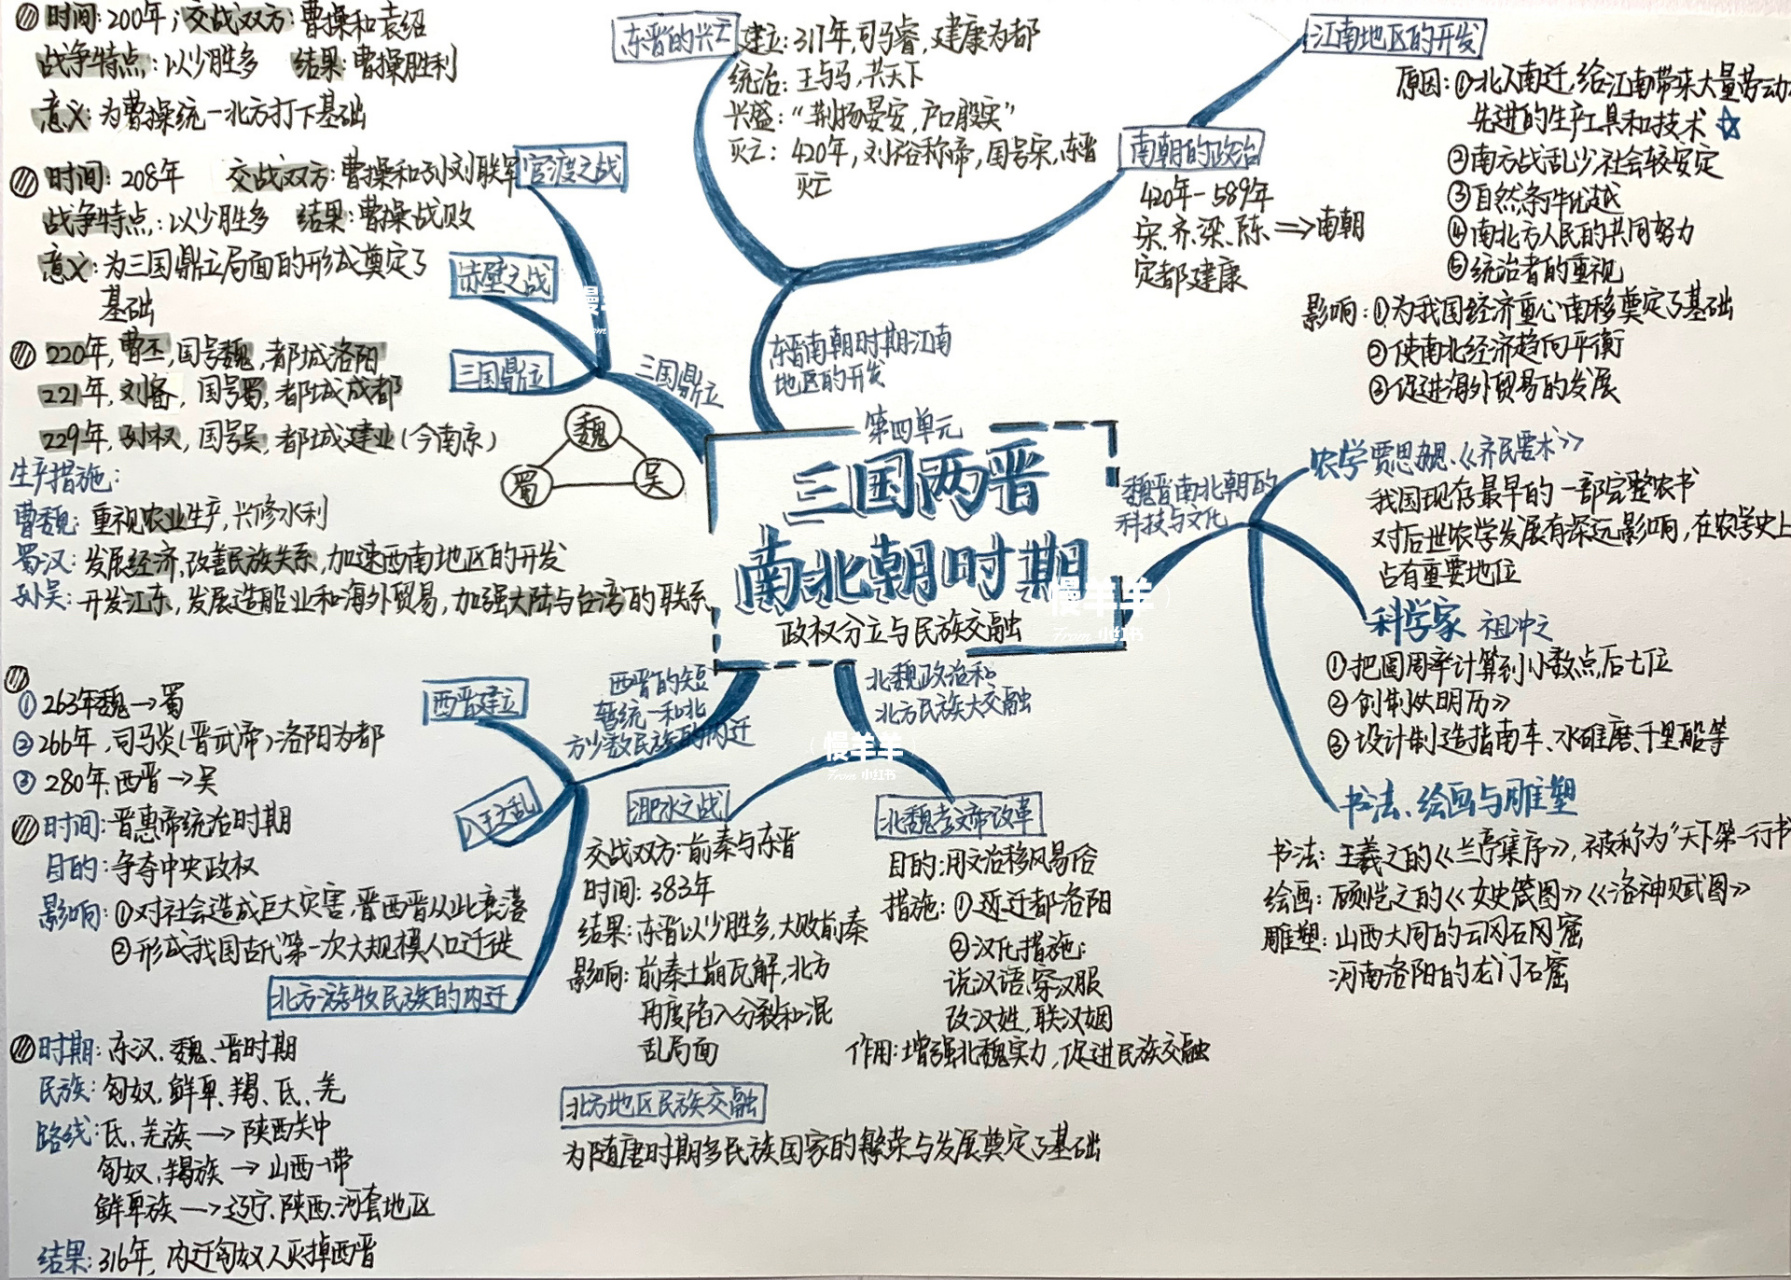 第四单元
三国两晋
南北朝时期
政权分立与民族交融
三国鼎立
官渡之战
时间:200年,交战双方:曹操和袁绍
战争特点:以少胜多 结果:曹操胜利
意义:为曹操统一北方打下基础
赤壁之战
时间:208年 交战双方:曹操和孙刘联军
战争特点:以少胜多 结果:曹操战败
意义:为三国鼎立局面的形成奠定了
基础
三国鼎立
220年,曹丕,国号魏,都城洛阳
221年,刘备,国号蜀,都城成都
229年,孙权,国号吴,都城建业(今南京)
魏
蜀
吴
生产措施:
曹魏:重视农业生产,兴修水利
蜀汉:发展经济,改善民族关系,加速西南地区的开发
孙吴:开发江东,发展造船业和海外贸易,加强大陆与台湾的联系
西晋的短
暂统一和北
方少数民族的内迁
西晋建立
①263年魏→蜀
②266年,司马炎(晋武帝)洛阳为都
③280年,西晋→吴
八王之乱
时间:晋惠帝统治时期
目的:争夺中央政权
影响:①对社会造成巨大灾害,晋西晋从此衰落
②形成我国古代第一次大规模人口迁徙
北方游牧民族的内迁
时期:东汉、魏、晋时期
民族:匈奴,鲜卑,羯、氐、羌
路线:氐、羌族→陕西关中
匈奴,羯族→山西一带
鲜卑族→辽宁、陕西、河套地区
结果:316年,内迁匈奴人灭掉西晋
东晋南朝时期江南
地区的开发
东晋的兴亡
建立:317年,司马睿,建康为都
统治:王与马,共天下
兴盛:“荆扬晏安,户口殷实”
灭亡:420年,刘裕称帝,国号宋,东晋
灭亡
南朝的政治
420年-589年
宋、齐、梁、陈⇒南朝
定都建康
江南地区的开发
原因:①北人南迁,给江南带来大量劳动
先进的生产工具和技术☆
②南方战乱少社会较安定
③自然条件优越
④南北方人民的共同努力
⑤统治者的重视
影响:①为我国经济重心南移奠定了基础
②使南北经济趋向平衡
③促进海外贸易的发展
魏晋南北朝的
科技与文化
农学 贾思勰《齐民要术》
我国现存最早的一部完整农书
对后世农学发展有深远影响,在农学史上
占有重要地位
科学家 祖冲之
①把圆周率计算到小数点后七位
②创制《大明历》
③设计制造指南车、水碓磨、千里船等
书法、绘画与雕塑
书法:王羲之的《兰亭集序》,被称为“天下第一行书
绘画:顾恺之的《女史箴图》《洛神赋图》
雕塑:山西大同的云冈石窟
河南洛阳的龙门石窟
北魏政治和
北方民族大交融
淝水之战
交战双方:前秦与东晋
时间:383年
结果:东晋以少胜多,大败前秦
影响:前秦土崩瓦解,北方
再度陷入分裂和混
乱局面
北魏孝文帝改革
目的:用文治移风易俗
措施:①迁都洛阳
②汉化措施:
说汉语,穿汉服
改汉姓,联汉姻
作用:增强北魏实力,促进民族交融
北方地区民族交融
为隋唐时期多民族国家的繁荣与发展奠定了基础
慢羊羊
From 小红书
慢羊羊
From 小红书